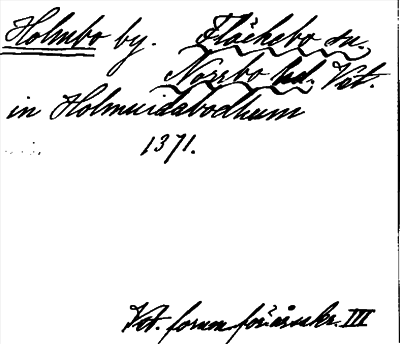 Holmbo by. Fläckebo sn.
Norrbo hd. Vst.
in Holmuidabodhum
1371.
Vst. fornm. för:s årsskr. III